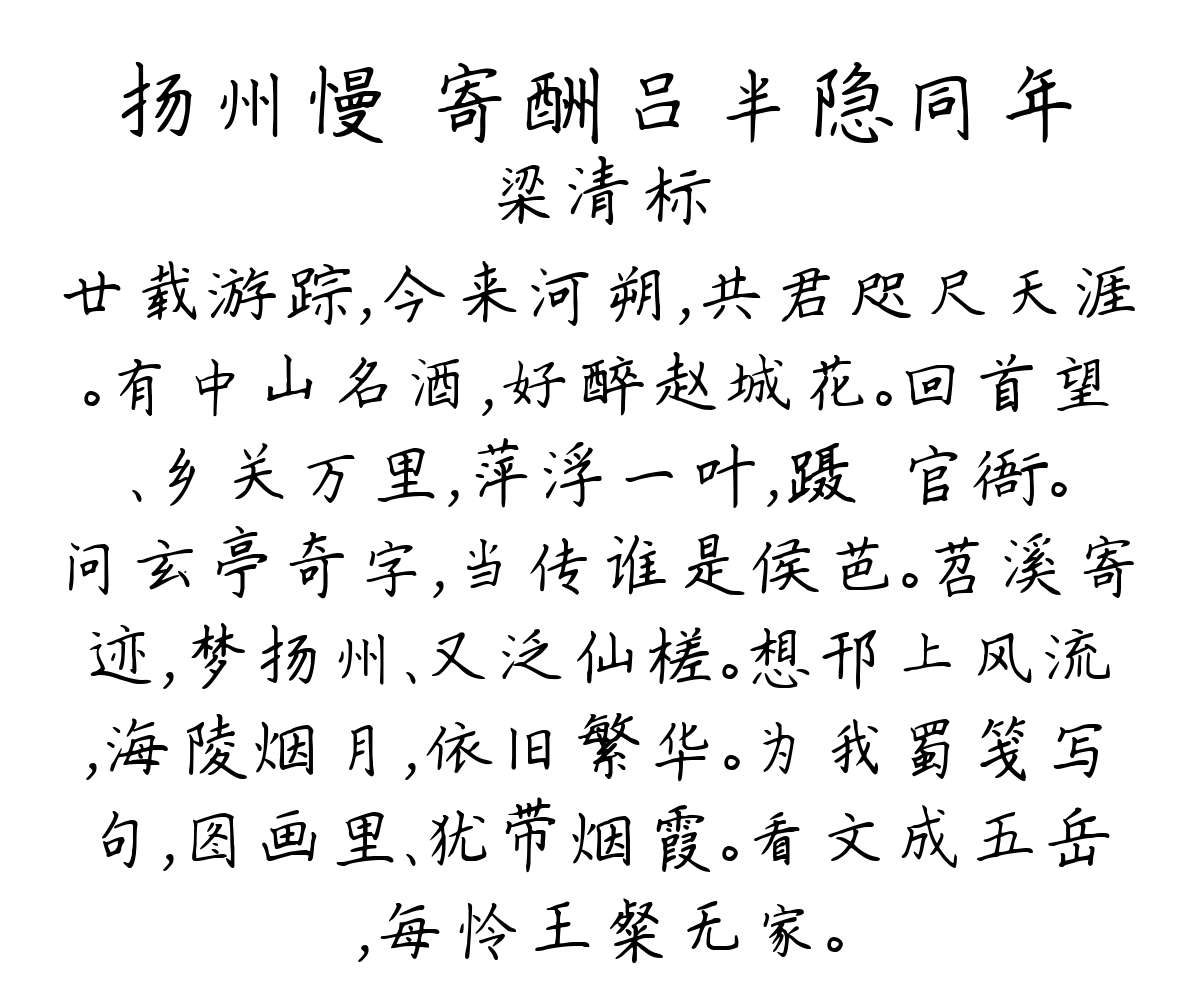 扬州慢 寄酬吕半隐同年
梁清标
廿载游踪,今来河朔,共君咫尺天涯
。有中山名酒,好醉赵城花。回首望
、乡关万里,萍浮一叶,蹑 官衙。
问玄亭奇字,当传谁是侯芭。苕溪寄
迹,梦扬州、又泛仙槎。想邗上风流
,海陵烟月,依旧繁华。为我蜀笺写
句,图画里、犹带烟霞。看文成五岳
,每怜王粲无家。